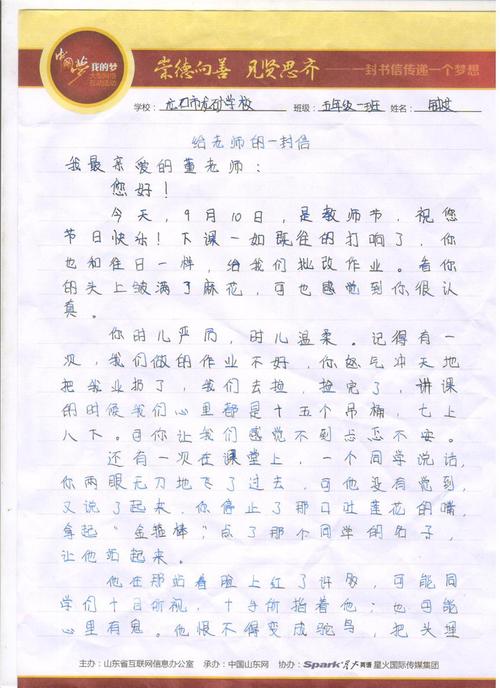 中国梦 我的梦
大型网络
互动活动
崇德向善 见贤思齐 一封书信传递一个梦想
学校：龙口市龙矿学校 班级：五年级一班 姓名：
给老师的一封信
我最亲爱的董老师：
您好！
今天，9月10日，是教师节，祝您
节日快乐！下课一如既往的打响了，你
也和往日一样，给我们批改作业。看你
的头上皱满了麻花，可也感觉到你很认
真。
你时儿严厉，时儿温柔。记得有一
次，我们做的作业不好，你怒气冲天地
把我业扔了，我们去捡，捡完了，讲课
的时候我们心里都是十五个吊桶，七上
八下。可你让我们感觉不到忐忑不安。
还有一次在课堂上，一个同学说话，
你两眼无刀地飞了过去，可他没有觉到，
又说了起来，你停止了那口吐莲花的嘴，
拿起“金箍棒”点了那个同学的名子，
让他站起来。
他在那站着脸上红了许多，可能同
学们十目所视，十手所指着他；也可能
心里有鬼。他恨不得变成鸵鸟，把头埋
主办：山东省互联网信息办公室 承办：中国山东网 协办：Spark 星火英语 星火国际传媒集团